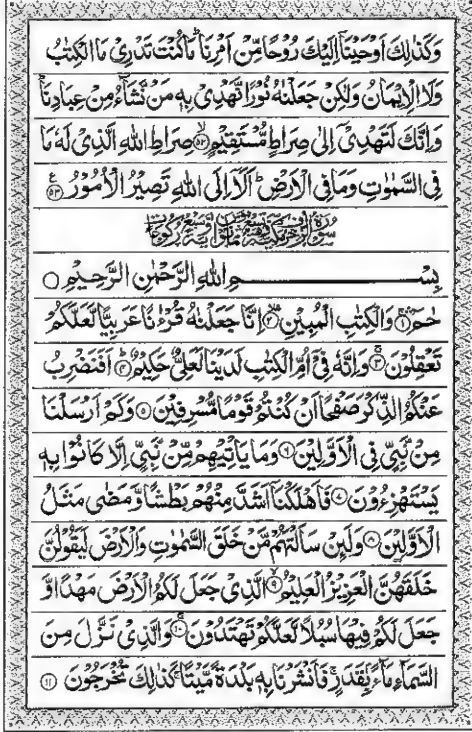 وَكَذٰلِكَ اَوْحَيْنَاۤ اِلَيْكَ رُوْحًا مِّنْ اَمْرِنَا ؕ مَا كُنْتَ تَدْرِيْ مَا الْكِتٰبُ
وَلَا الْاِيْمَانُ وَلٰكِنْ جَعَلْنٰهُ نُوْرًا نَّهْدِيْ بِهٖ مَنْ نَّشَآءُ مِنْ عِبَادِنَا ؕ
وَاِنَّكَ لَتَهْدِيْۤ اِلٰى صِرَاطٍ مُّسْتَقِيْمٍ ۙ﴿۵۲﴾ صِرَاطِ اللّٰهِ الَّذِيْ لَهٗ مَا
فِى السَّمٰوٰتِ وَمَا فِى الْاَرْضِ ؕ اَلَاۤ اِلَى اللّٰهِ تَصِيْرُ الْاُمُوْرُ ﴿۵۳﴾
سُوْرَةُ الزُّخْرُفِ مَكِّيَّةٌ
بِسْمِ اللّٰهِ الرَّحْمٰنِ الرَّحِيْمِ
حٰمٓ ﴿۱﴾ وَالْكِتٰبِ الْمُبِيْنِ ﴿۲﴾ اِنَّا جَعَلْنٰهُ قُرْءٰنًا عَرَبِيًّا لَّعَلَّكُمْ
تَعْقِلُوْنَ ﴿۳﴾ وَاِنَّهٗ فِيْۤ اُمِّ الْكِتٰبِ لَدَيْنَا لَعَلِيٌّ حَكِيْمٌ ﴿۴﴾ اَفَنَضْرِبُ
عَنْكُمُ الذِّكْرَ صَفْحًا اَنْ كُنْتُمْ قَوْمًا مُّسْرِفِيْنَ ﴿۵﴾ وَكَمْ اَرْسَلْنَا
مِنْ نَّبِيٍّ فِى الْاَوَّلِيْنَ ﴿۶﴾ وَمَا يَاْتِيْهِمْ مِّنْ نَّبِيٍّ اِلَّا كَانُوْا بِهٖ
يَسْتَهْزِءُوْنَ ﴿۷﴾ فَاَهْلَكْنَاۤ اَشَدَّ مِنْهُمْ بَطْشًا وَّمَضٰى مَثَلُ
الْاَوَّلِيْنَ ﴿۸﴾ وَلَئِنْ سَاَلْتَهُمْ مَّنْ خَلَقَ السَّمٰوٰتِ وَالْاَرْضَ لَيَقُوْلُنَّ
خَلَقَهُنَّ الْعَزِيْزُ الْعَلِيْمُ ۙ﴿۹﴾ الَّذِيْ جَعَلَ لَكُمُ الْاَرْضَ مَهْدًا وَّ
جَعَلَ لَكُمْ فِيْهَا سُبُلًا لَّعَلَّكُمْ تَهْتَدُوْنَ ﴿۱۰﴾ وَالَّذِيْ نَزَّلَ مِنَ
السَّمَآءِ مَآءًۢ بِقَدَرٍ ۚ فَاَنْشَرْنَا بِهٖ بَلْدَةً مَّيْتًا ۚ كَذٰلِكَ تُخْرَجُوْنَ ﴿۱۱﴾